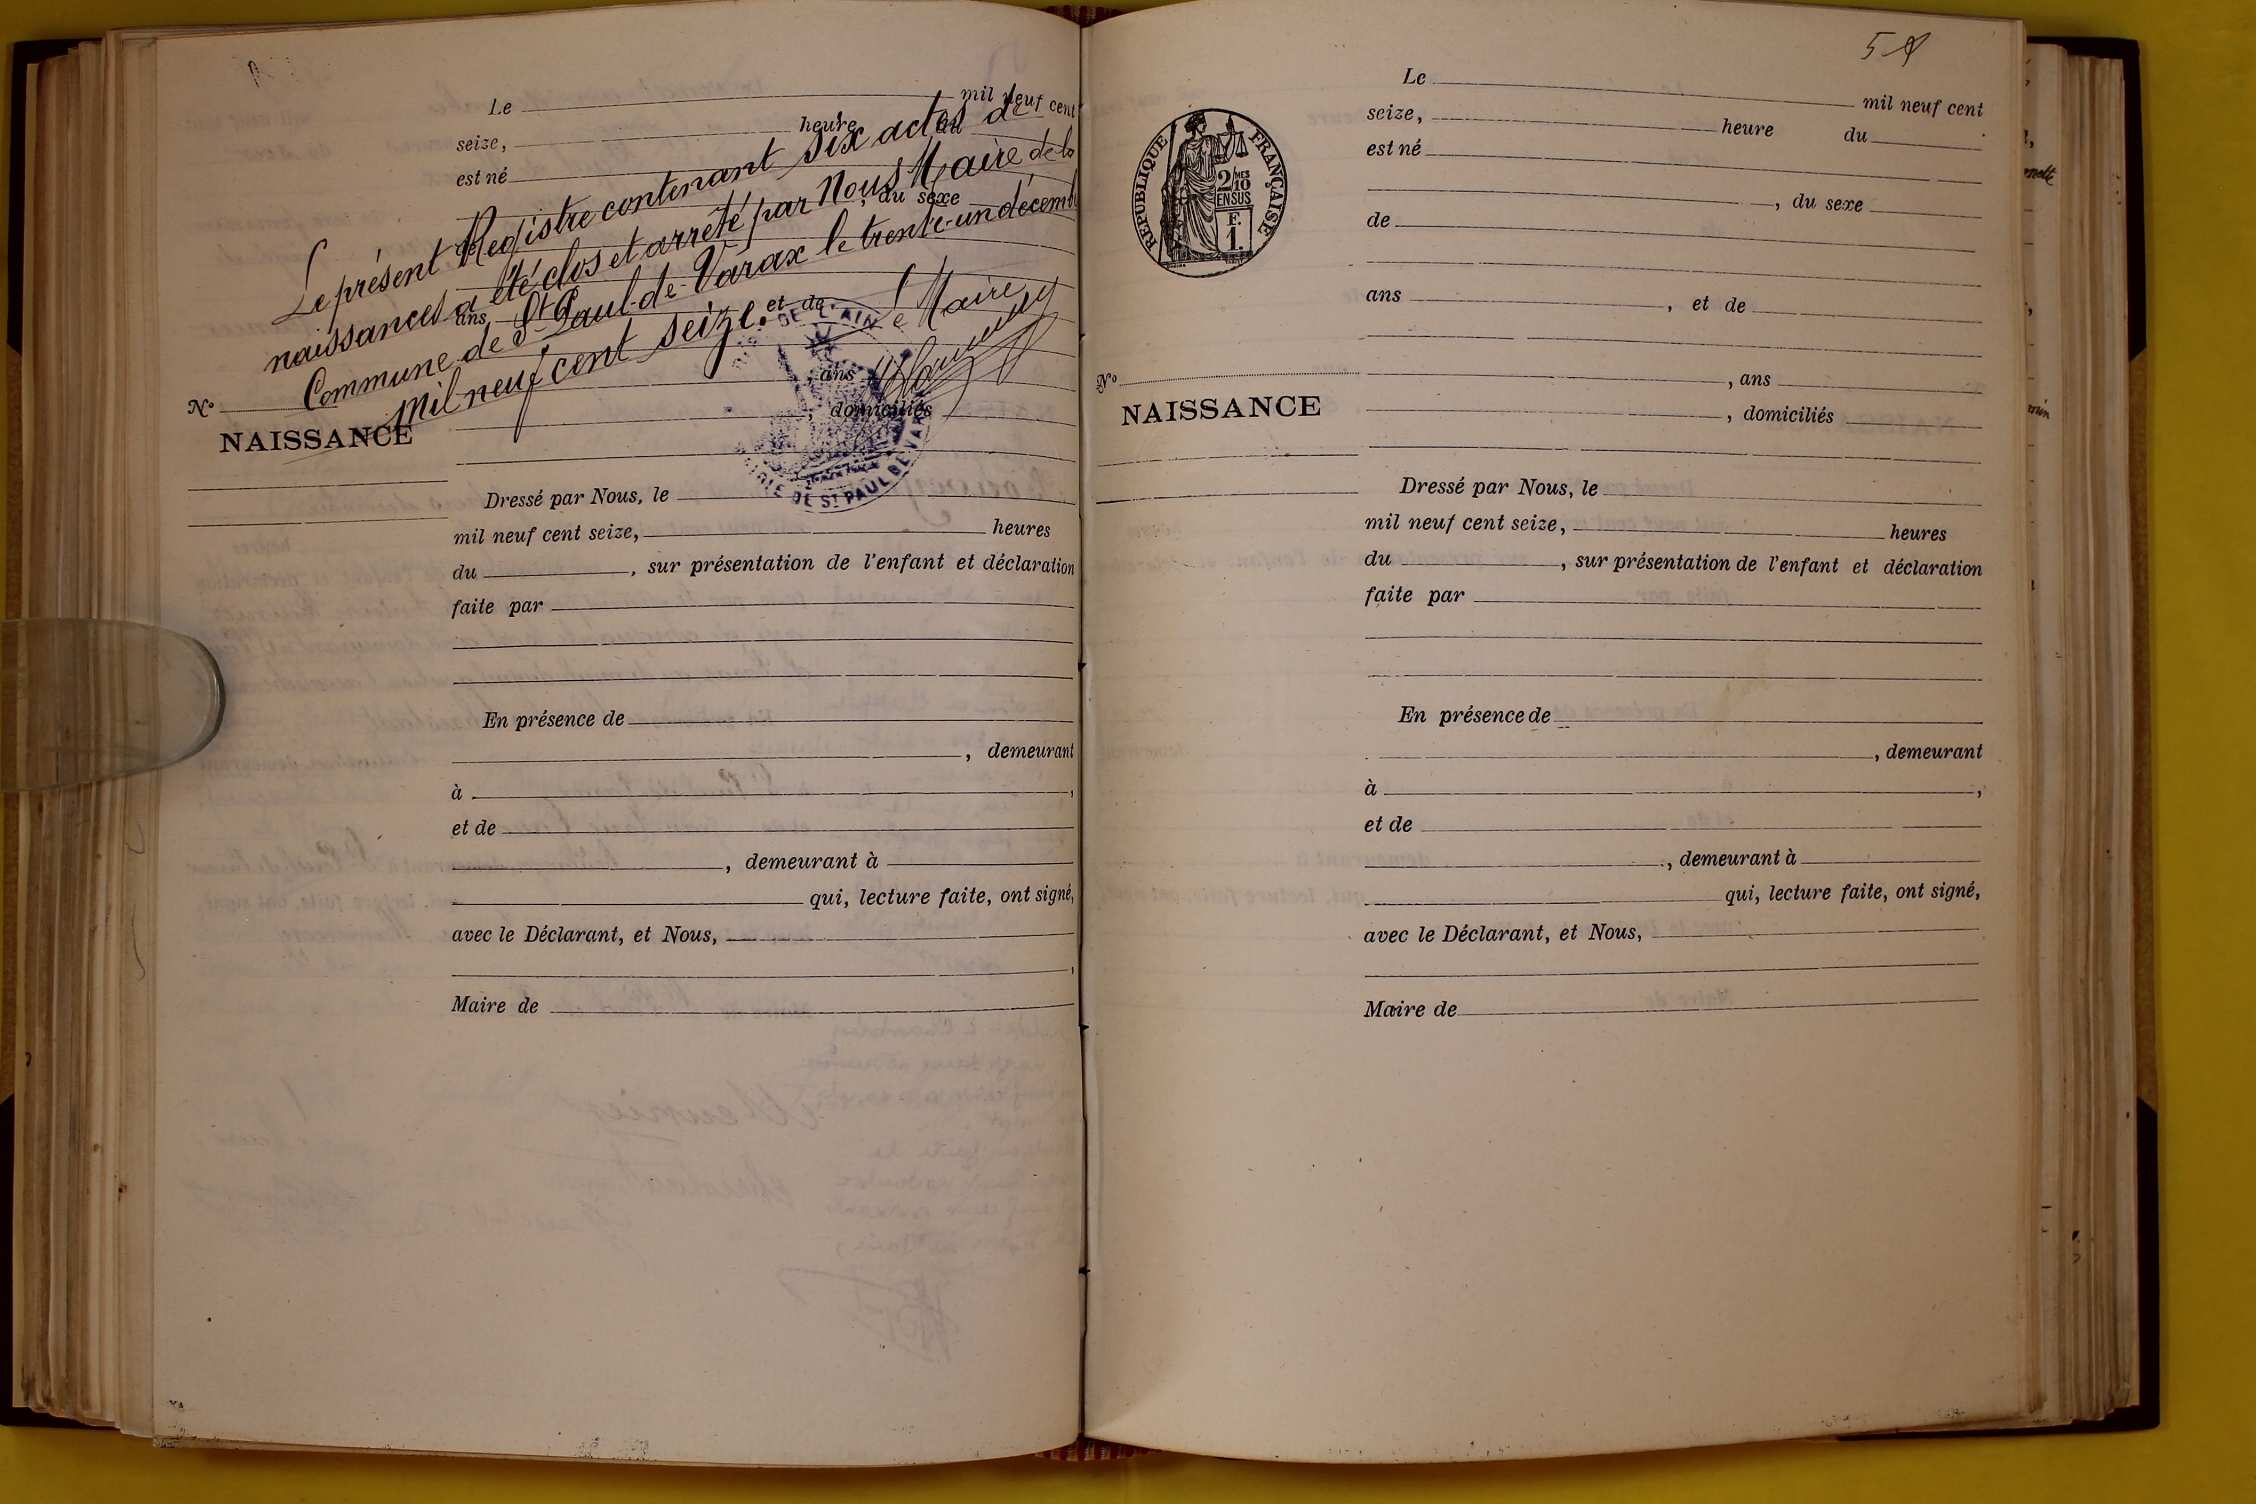 Le mil neuf cent
seize, heure du
est né
, du sexe
Le présent Registre contenant six actes de
naissances a été clos et arrêté par Nous Maire de la
Commune de St Paul-de-Varax le trente-un décembre
mil neuf cent seize.
Le Maire
ans et de
, ans
, domiciliés
DE L'AIN
MAIRIE DE ST PAUL DE VARAX
No
NAISSANCE
Dressé par Nous, le
mil neuf cent seize, heures
du , sur présentation de l'enfant et déclaration
faite par
En présence de
, demeurant
à ,
et de
, demeurant à
qui, lecture faite, ont signé,
avec le Déclarant, et Nous,
,
Maire de
5
RÉPUBLIQUE FRANÇAISE
2/10 MES
EN SUS
F.
1.
Le mil neuf cent
seize, heure du
est né
, du sexe
de
ans , et de
, ans
, domiciliés
No
NAISSANCE
Dressé par Nous, le
mil neuf cent seize, heures
du , sur présentation de l'enfant et déclaration
faite par
En présence de
, demeurant
à ,
et de
, demeurant à
qui, lecture faite, ont signé,
avec le Déclarant, et Nous,
Maire de